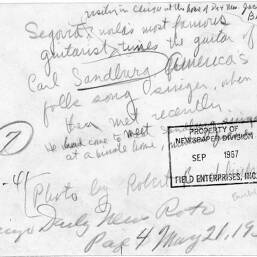 visiting in Chicago at the home of Dr & Mrs.
Segovia world's most famous
guitarist tunes the guitar of
Carl Sandburg America's
folk song singer, when
they met recently.
He had come to meet
at a private home,
7
PROPERTY OF
NEWSPAPER DIVISION
SEP 1967
FIELD ENTERPRISES, INC.
-41
Photo by Robert
Daily News Roto
Page 4 May 21, 19